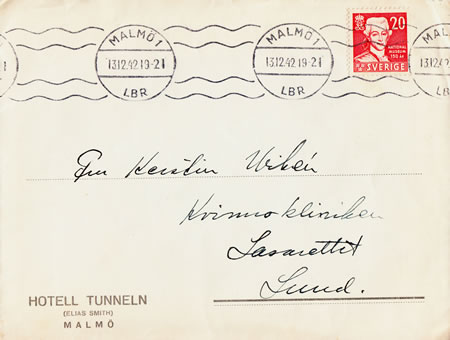 MALMÖ 1
13.12.42.19-21
LBR
MALMÖ 1
13.12.42.19-21
LBR
20
NATIONAL
MUSEUM
150 år
SVERIGE
MALM
13.12.42
LB
Fru Kerstin Wikén
Kvinnokliniken
Lasarettet
Lund.
HOTELL TUNNELN
(ELIAS SMITH)
MALMÖ